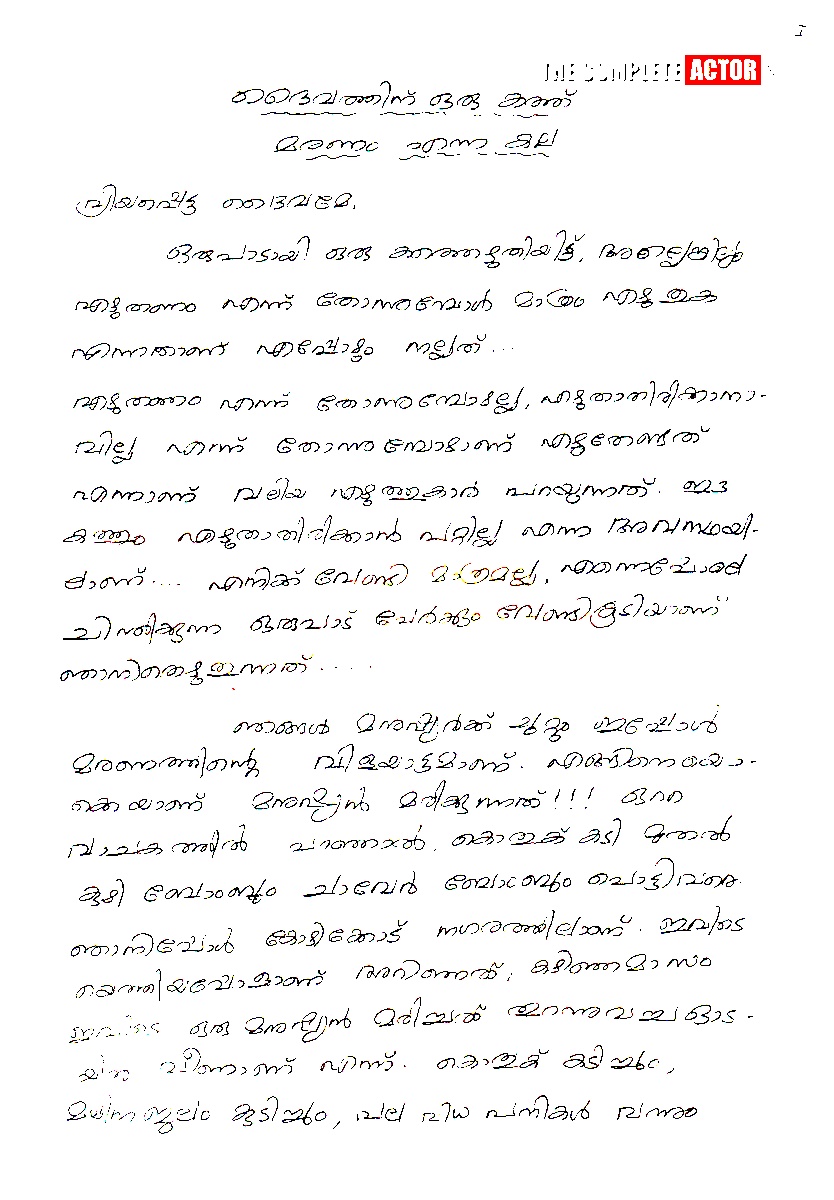 I
THE COMPLETE ACTOR
ദൈവത്തിന് ഒരു കത്ത്
മരണം എന്ന കല
പ്രിയപ്പെട്ട ദൈവമേ,
ഒരുപാടായി ഒരു കത്തെഴുതിയിട്ട്, അല്ലെങ്കിലും
എഴുതണം എന്ന് തോന്നുമ്പോൾ മാത്രം എഴുതുക
എന്നതാണ് എപ്പോഴും നല്ലത്...
എഴുതണം എന്ന് തോന്നുമ്പോഴല്ല, എഴുതാതിരിക്കാനാ-
വില്ല എന്ന് തോന്നുമ്പോഴാണ് എഴുതേണ്ടത്
എന്നാണ് വലിയ എഴുത്തുകാർ പറയുന്നത്. ഈ
കത്തും എഴുതാതിരിക്കാൻ പറ്റില്ല എന്ന അവസ്ഥയി-
ലാണ്.... എനിക്ക് വേണ്ടി മാത്രമല്ല, എന്നെപ്പോലെ
ചിന്തിക്കുന്ന ഒരുപാട് പേർക്കും വേണ്ടികൂടിയാണ്
ഞാനിതെഴുതുന്നത്.....
ഞങ്ങൾ മനുഷ്യർക്ക് ചുറ്റും ഇപ്പോൾ
മരണത്തിന്റെ വിളയാട്ടമാണ്. എങ്ങിനെയൊ-
ക്കെയാണ് മനുഷ്യൻ മരിക്കുന്നത്!!! ഒറ്റ
വാചകത്തിൽ പറഞ്ഞാൽ, കൊതുക് കടി മുതൽ
കുഴി ബോംബും ചാവേർ ബോംബും പൊട്ടിവരെ.
ഞാനിപ്പോൾ കോഴിക്കോട് നഗരത്തിലാണ്. ഇവിടെ
യെത്തിയപ്പോളാണ് അറിഞ്ഞത്, കഴിഞ്ഞമാസം
ഇവിടെ ഒരു മനുഷ്യൻ മരിച്ചത് തുറന്നുവച്ച ഓട-
യിൽ വീണാണ് എന്ന്. കൊതുക് കടിച്ചും,
മലിനജലം കുടിച്ചും, പല വിധ പനികൾ വന്നും